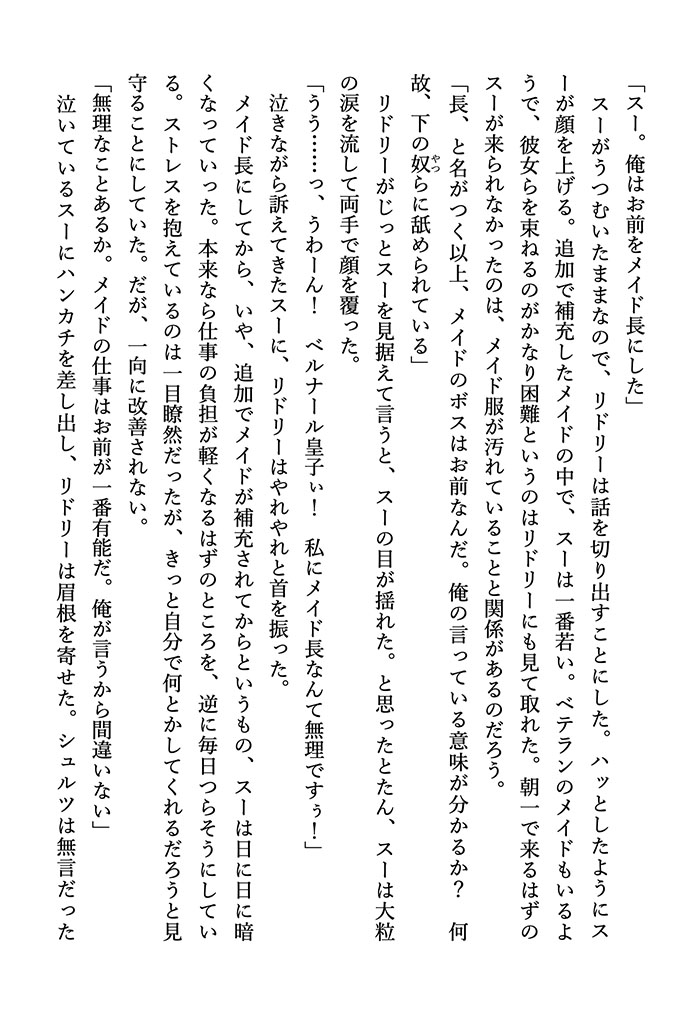 「スー。俺はお前をメイド長にした」
　スーがうつむいたままなので、リドリーは話を切り出すことにした。ハッとしたようにス
ーが顔を上げる。追加で補充したメイドの中で、スーは一番若い。ベテランのメイドもいるよ
うで、彼女らを束ねるのがかなり困難というのはリドリーにも見て取れた。朝一で来るはずの
スーが来られなかったのは、メイド服が汚れていることと関係があるのだろう。
「長、と名がつく以上、メイドのボスはお前なんだ。俺の言っている意味が分かるか？　何
故、下の奴やつらに舐められている」
　リドリーがじっとスーを見据えて言うと、スーの目が揺れた。と思ったとたん、スーは大粒
の涙を流して両手で顔を覆った。
「うう……っ、うわーん！　ベルナール皇子ぃ！　私にメイド長なんて無理ですぅ！」
　泣きながら訴えてきたスーに、リドリーはやれやれと首を振った。
　メイド長にしてから、いや、追加でメイドが補充されてからというもの、スーは日に日に暗
くなっていった。本来なら仕事の負担が軽くなるはずのところを、逆に毎日つらそうにしてい
る。ストレスを抱えているのは一目瞭然だったが、きっと自分で何とかしてくれるだろうと見
守ることにしていた。だが、一向に改善されない。
「無理なことあるか。メイドの仕事はお前が一番有能だ。俺が言うから間違いない」
　泣いているスーにハンカチを差し出し、リドリーは眉根を寄せた。シュルツは無言だった